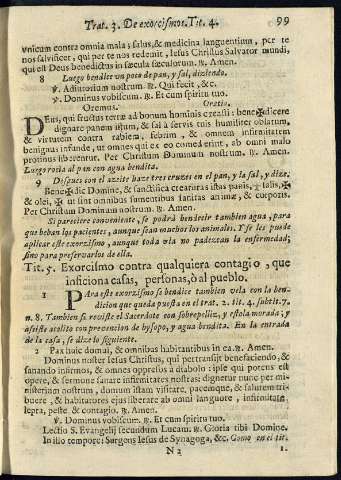 Trat. 3. De exorcismor. Tit. 4. 99
vnicum contra omnia mala; salus, & medicina languentium, per te
nos salvificet, qui per te nos redemit, Iesus Christus Salvator mundi,
qui est Deus benedictus in sæcula sæculorum. ℟. Amen.
8 Luego bendice un poco de pan, y sal, diziendo.
℣. Adiutorium nostrum. ℟. Qui fecit, &c.
℣. Dominus vobiscum. ℟. Et cum spiritu tuo.
Oremus. Oratio.
Deus, qui fructus terræ ad bonum hominis creasti: bene✠dicere
dignare panem istum, & sal à servis tuis humiliter oblatum,
& virtutem contra rabiem, febrim, & omnem infirmitatem
benignus infunde, ut omnes qui ex eo comederint, ab omni malo
protinus liberentur. Per Christum Dominum nostrum. ℟. Amen.
Luego rocia al pan con agua bendita.
9 Despues con el azeite haze tres cruzes en el pan, y la sal, y dize.
Bene✠dic Domine, & sanctifica creaturas istas panis, ✠ salis, ✠
& olei, ✠ ut sint omnibus sumentibus sanitas animæ, & corporis.
Per Christum Dominum nostrum. ℟. Amen.
Si pareciere conveniente, se podrá bendecir tambien agua, para
que beban los pacientes, aunque sean muchos los animales. Y se les puede
aplicar este exorzismo, aunque toda via no padezcan la enfermedad;
sino para preservarlos de ella.
Tit. 5. Exorcismo contra qualquiera contagio, que
inficiona casas, personas, ò al pueblo.
1 Para este exorzismo se bendice tambien vela con la ben-
dicion que queda puesta en el trat. 2. tit. 4. subtit. 7.
n. 8. Tambien se reviste el Sacerdote con sobrepelliz, y estola morada; y
asiste acolito con prevencion de hysopo, y agua bendita. En la entrada
de la casa, se dize lo siguiente.
2 Pax huic domui, & omnibus habitantibus in ea. ℟. Amen.
Dominus noster Iesus Christus, qui pertransijt benefaciendo, &
sanando infirmos, & omnes oppresos à diabolo: ipse qui potens est
opere, & sermone sanare infirmitates nostras: dignetur nunc per mi-
nisterium nostrum, domum istam visitare, pacemque, & salutem tri-
buere, & habitatores ejus liberare ab omni languore, infirmitate
lepra, peste & contagio. ℟. Amen.
℣. Dominus vobiscum. ℟. Et cum spiritu tuo.
Lectio S. Evangelij secundum Lucam. ℟. Gloria tibi Domine.
In illo tempore: Surgens Iesus de Synagoga, &c. Como en el tit.
N 2 1.